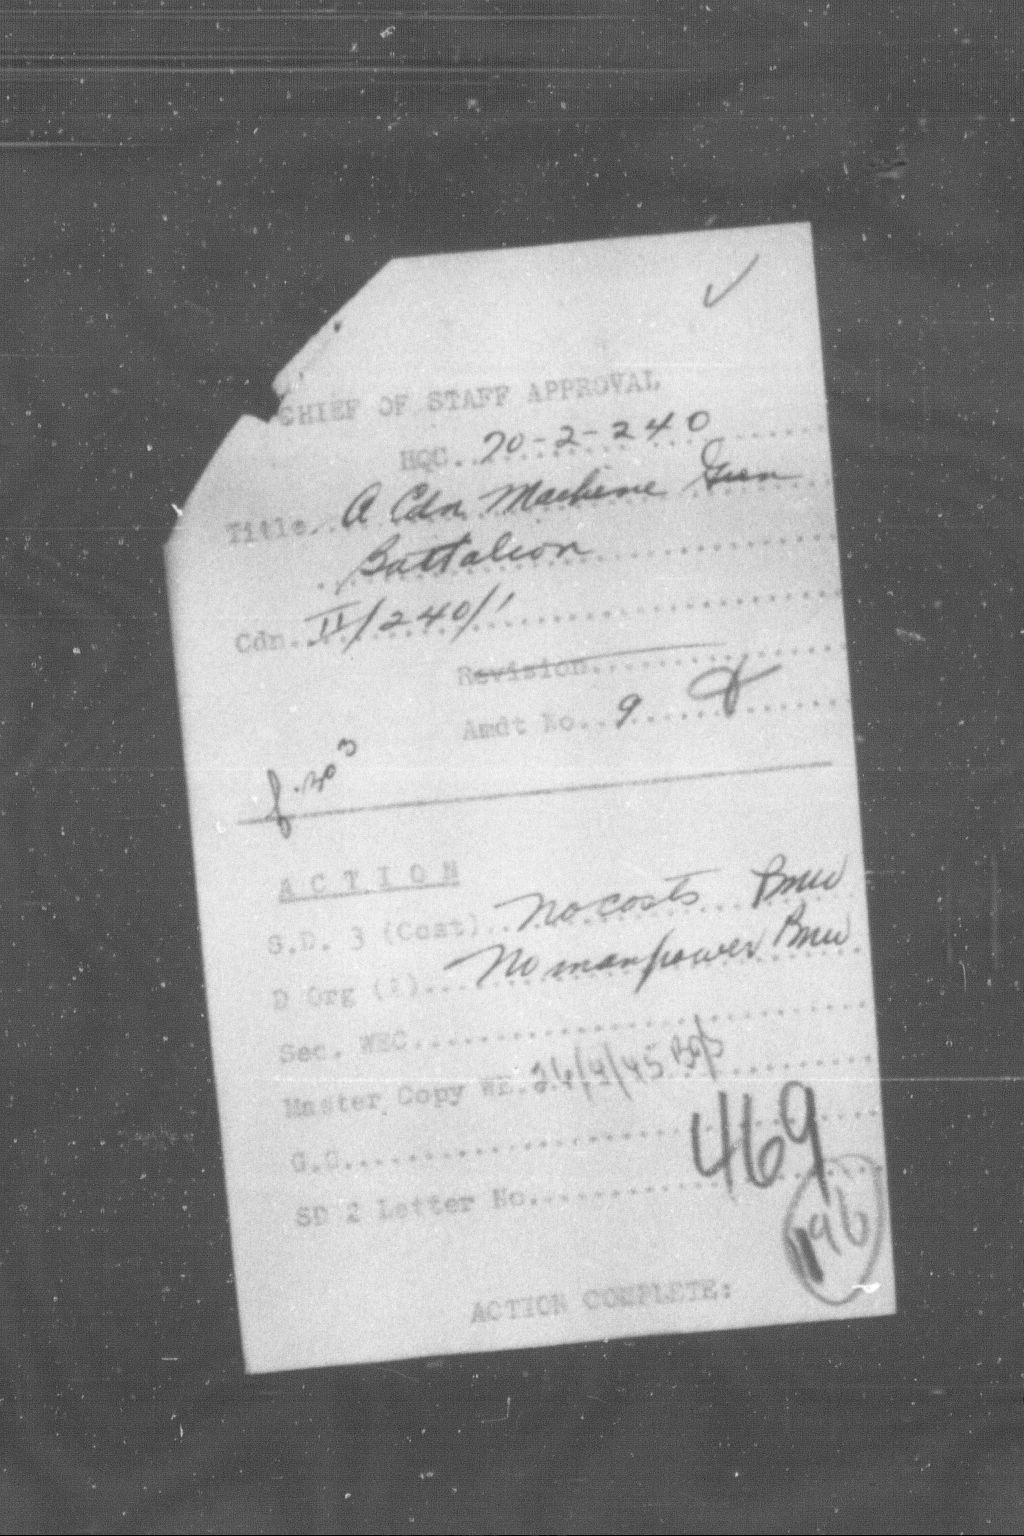 ✓
CHIEF OF STAFF APPROVAL
HQC..70-2-240
Title..A Cdn Machine Gun
Battalion
Cdn..II/240/1
Revision
Amdt No..9
ACTION
S.D. 3 (Cost)..No costs BMW
D Org ( )...No manpower BMW
Sec. WEC
Master Copy WE.26/4/45
G.O.
SD 2 Letter No. 469
196
ACTION COMPLETE: